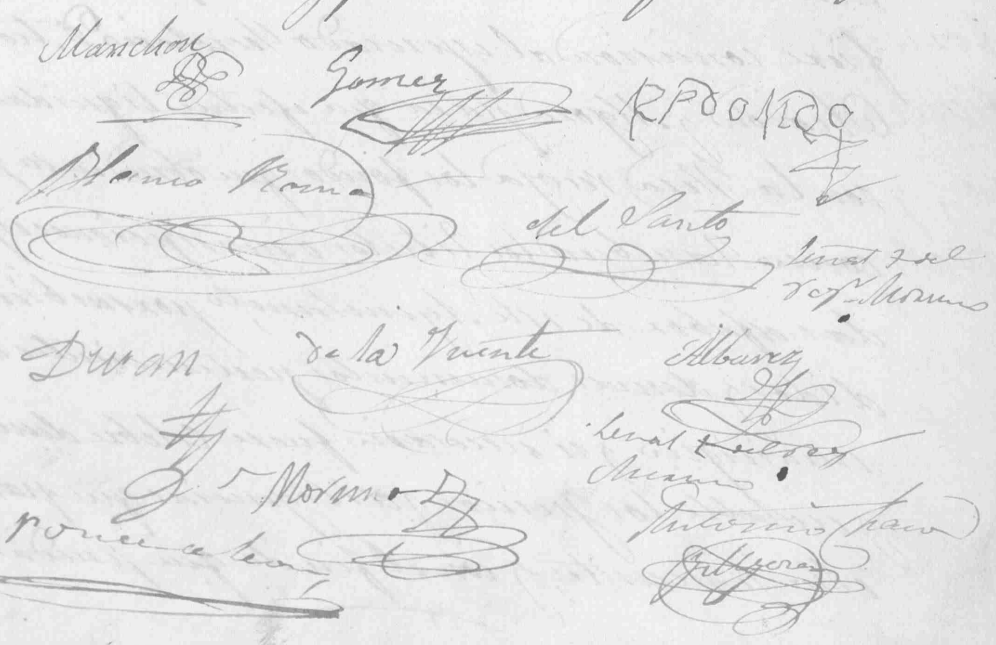 Manchon
Gomez
REDONDO
Blanco Roma
del Santo
Señal + del
rexr Moreno
Duran
de la Fuente
Albarez
Señal + del rex
Moreno
Moreno
Ponce de Leon
Antonio Chaco